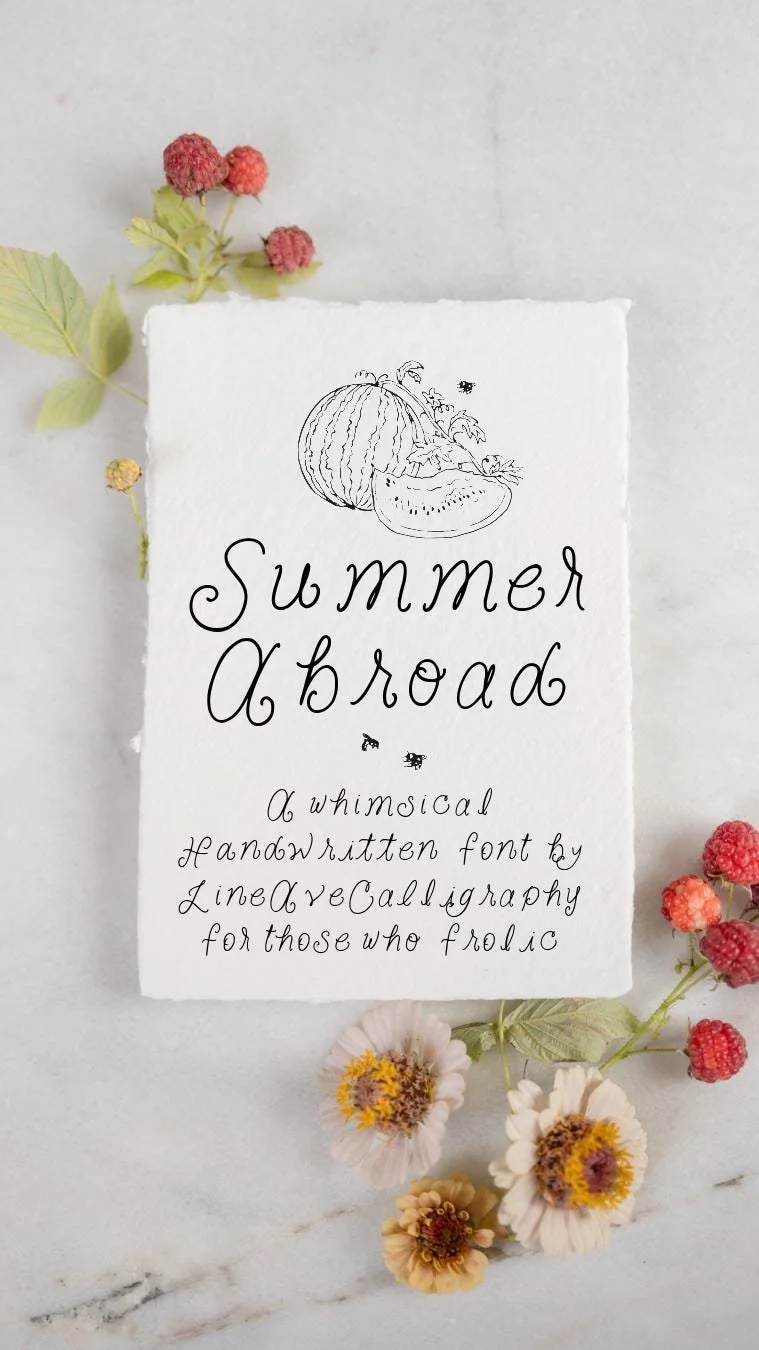 Summer
Abroad
A whimsical
HandWritten font by
LineAveCalligraphy
for those who frolic